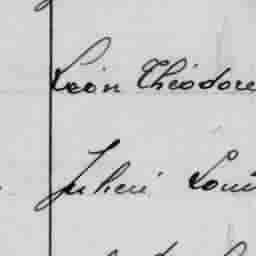 Léon Théodore
Julien Louis